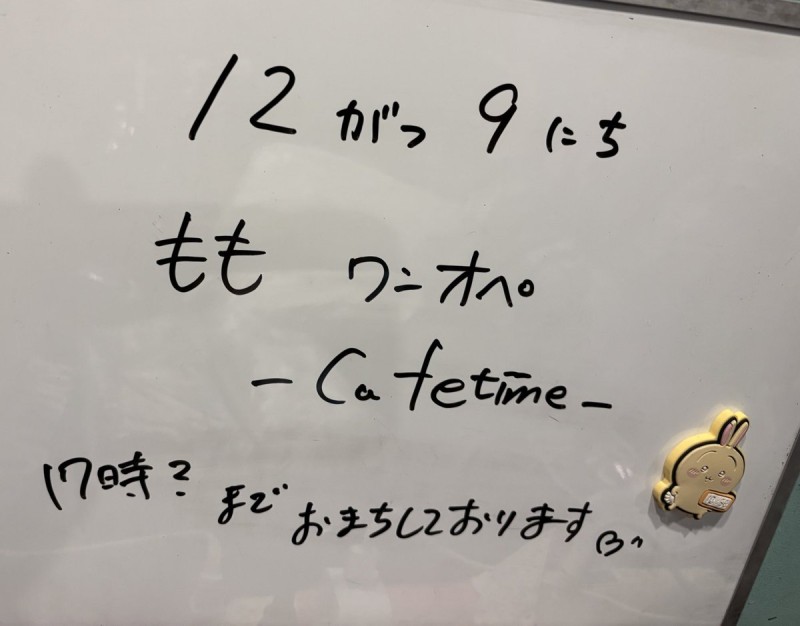 12がつ9にち
もも ワンオペ
-Cafetime-
17時?までおまちしております